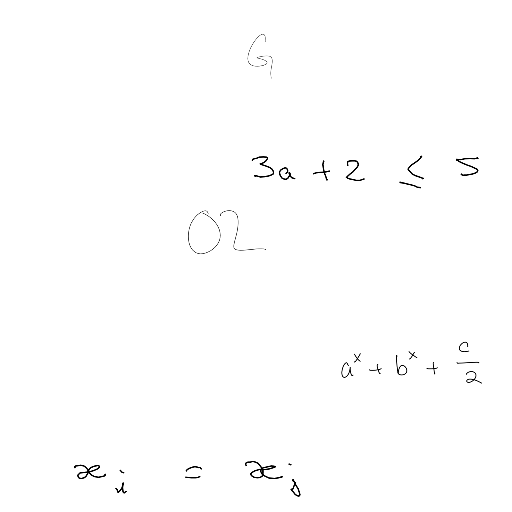 G
3a + 2 ≤ 5
02
a^x + b^x + c/2
x_i = x_j